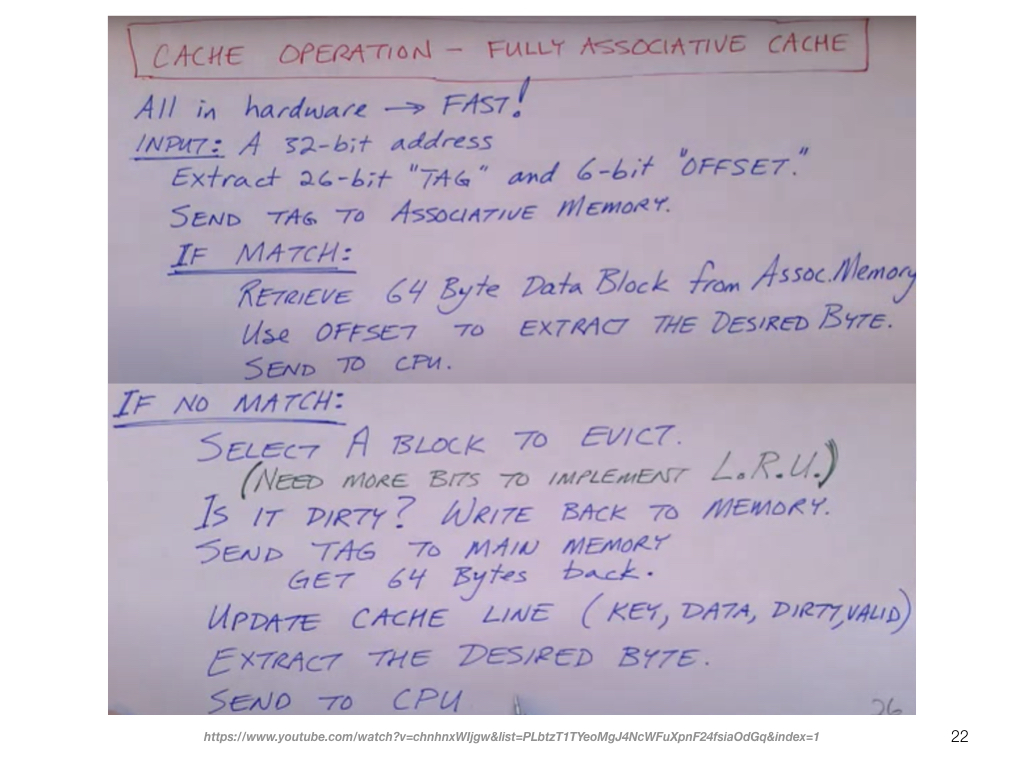 CACHE OPERATION - FULLY ASSOCIATIVE CACHE
All in hardware → FAST!
INPUT: A 32-bit address
Extract 26-bit "TAG" and 6-bit "OFFSET."
SEND TAG TO ASSOCIATIVE MEMORY.
IF MATCH:
RETRIEVE 64 Byte Data Block from Assoc. Memory
Use OFFSET TO EXTRACT THE DESIRED BYTE.
SEND TO CPU.
IF NO MATCH:
SELECT A BLOCK TO EVICT.
(NEED MORE BITS TO IMPLEMENT L.R.U.)
IS IT DIRTY? WRITE BACK TO MEMORY.
SEND TAG TO MAIN MEMORY
GET 64 Bytes back.
UPDATE CACHE LINE (KEY, DATA, DIRTY, VALID)
EXTRACT THE DESIRED BYTE.
SEND TO CPU
26
https://www.youtube.com/watch?v=chnhnxWIjgw&list=PLbtzT1TYeoMgJ4NcWFuXpnF24fsiaOdGq&index=1
22